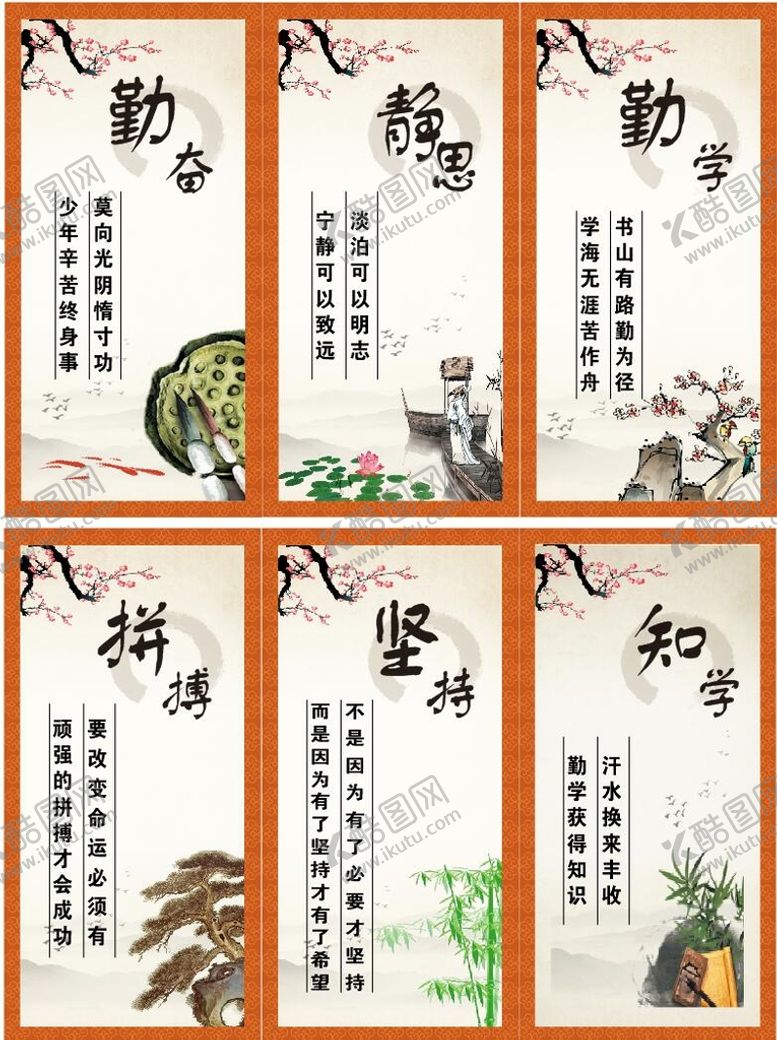 勤奋
莫向光阴惰寸功
少年辛苦终身事
静思
淡泊可以明志
宁静可以致远
勤学
书山有路勤为径
学海无涯苦作舟
拼搏
要改变命运必须有
顽强的拼搏才会成功
坚持
不是因为有了必要才坚持
而是因为有了坚持才有了希望
知学
汗水换来丰收
勤学获得知识
酷图网
www.ikutu.com